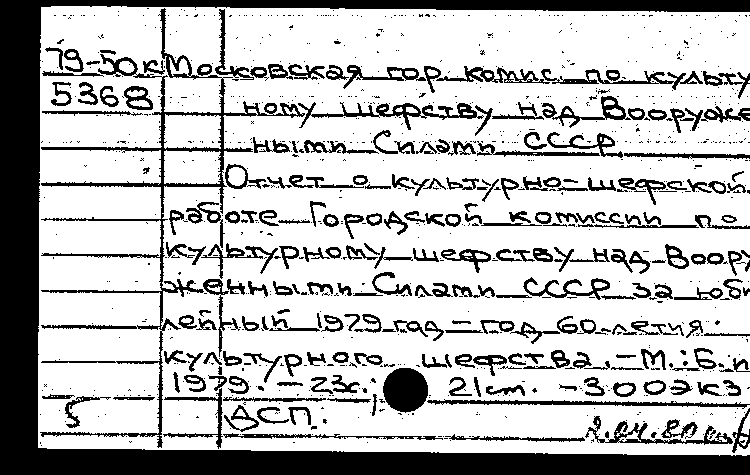 79-50к Московская гор. комис. по культу
5368 ному шефству над Вооруже
ными Силами СССР
Отчет о культурно-шефской
работе Городской комиссии по
культурному шефству над Воору
женными Силами СССР за юби
лейный 1979 год - год 60-летия
культурного шефства. - М.: Б.и
1979. - 23с.; 21 см. - 300экз
5 ДСП.
2.04.80